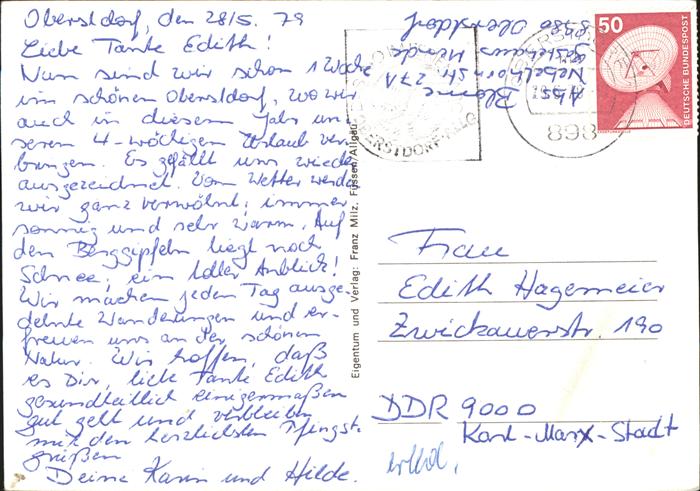 Oberstdorf, den 28/5. 79
Liebe Tante Edith!
Nun sind wir schon 1 Woche
im schönen Oberstdorf, wo wir
auch in diesem Jahr un-
seren 4-wöchigen Urlaub ver-
bringen. Es gefällt uns wieder
ausgezeichnet. Vom Wetter werden
wir ganz verwöhnt; immer
sonnig und sehr warm. Auf
den Berggipfeln liegt noch
Schnee; ein toller Anblick!
Wir machen jeden Tag ausge-
dehnte Wanderungen und er-
freuen uns an der schönen
Natur. Wir hoffen, daß
es Dir, liebe Tante Edith
gesundheitlich einigermaßen
gut geht und verbleiben
mit den herzlichsten Pfingst-
grüßen
Deine Karin und Hilde.
Abs:
Nebelhornstr. 27A
Gästehaus
8980 Oberstdorf
Eigentum und Verlag: Franz Milz, Füssen/Allgäu
OBERSTDORF/ALLG
898
50
DEUTSCHE BUNDESPOST
Frau
Edith Hagemeier
Zwickauerstr. 190
DDR 9000
Karl-Marx-Stadt